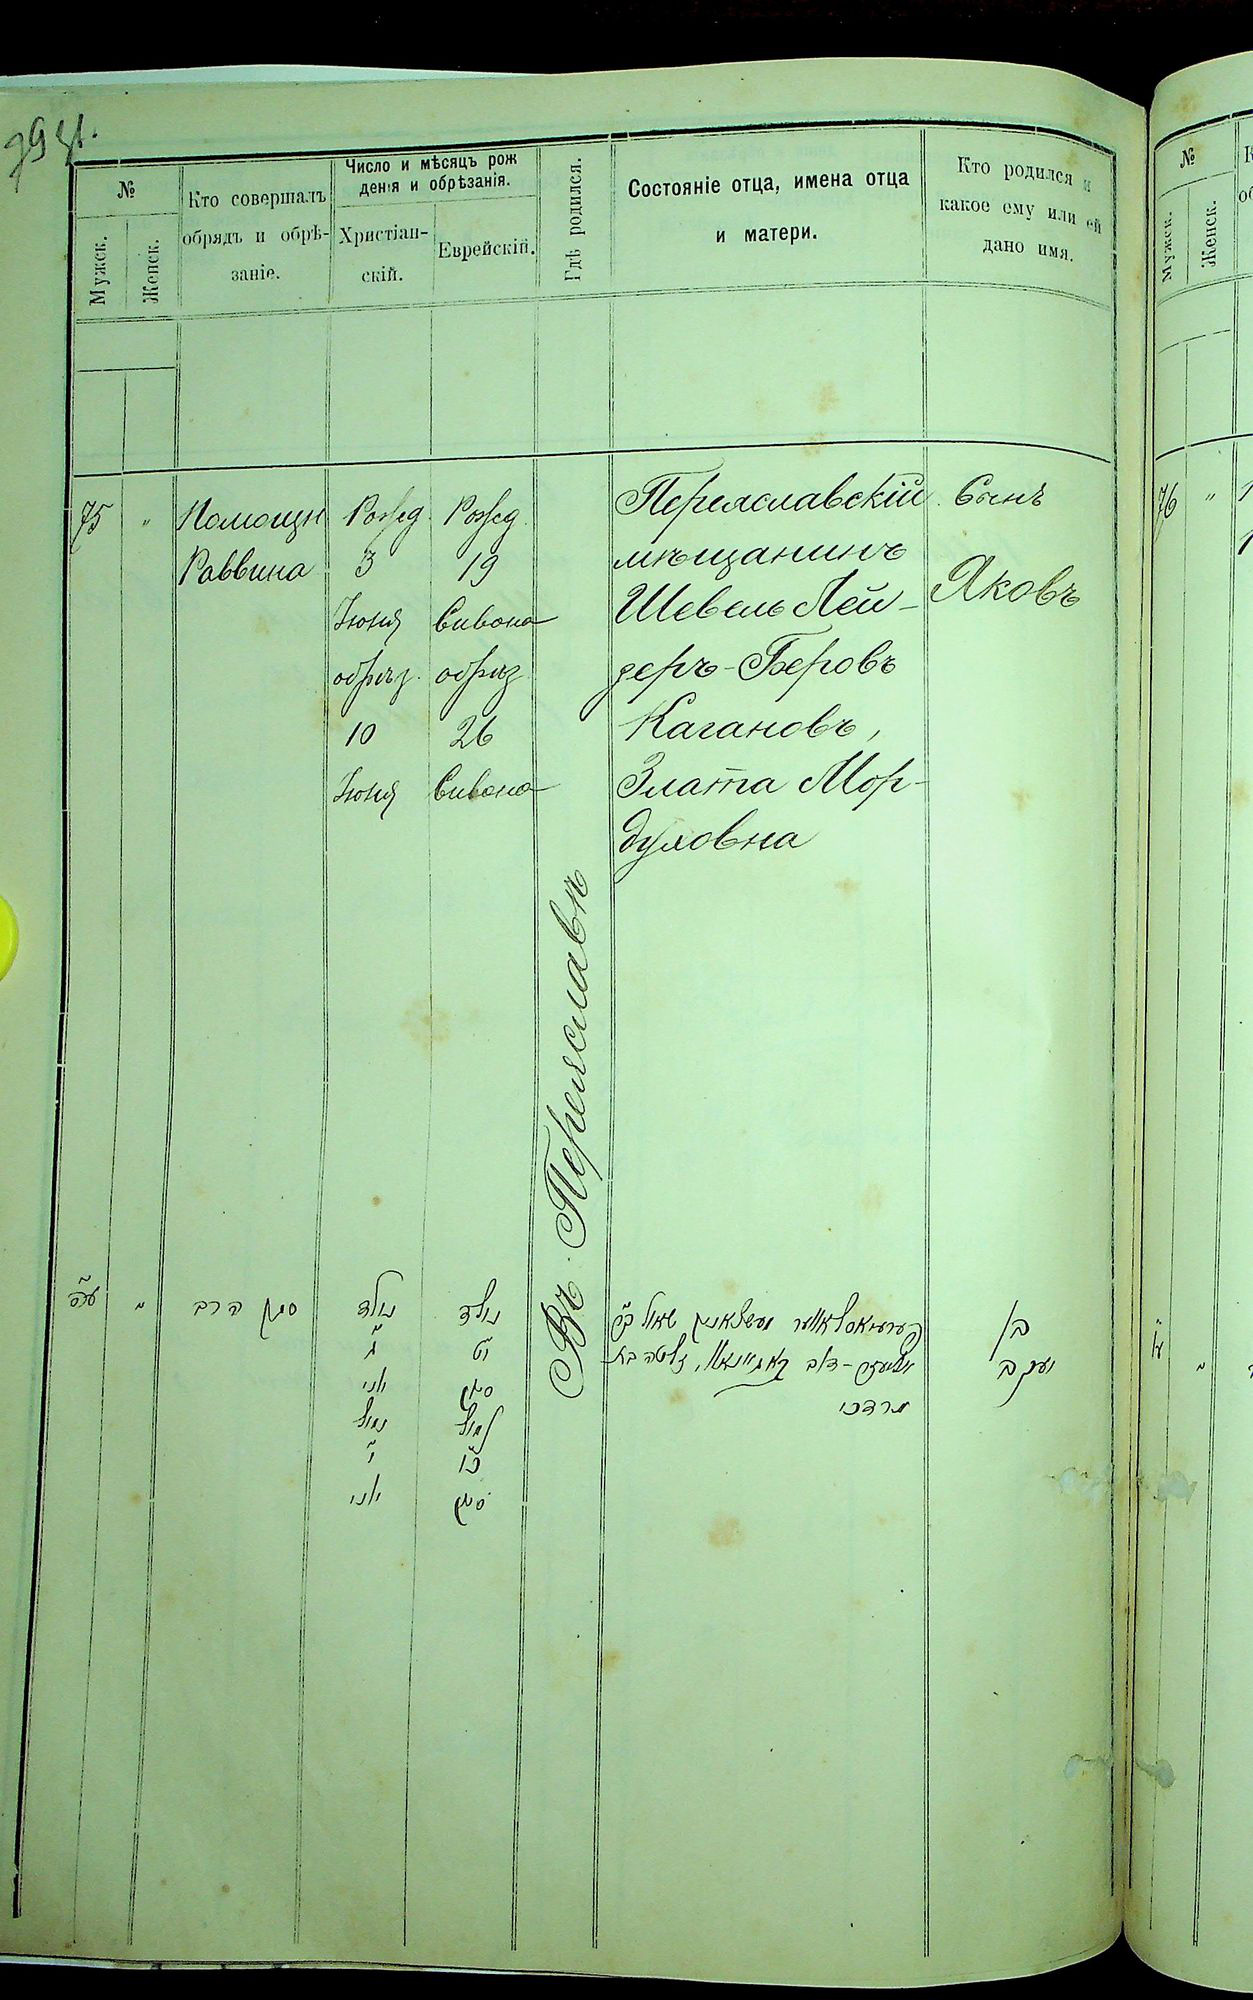 №
Мужск.
Женск.
Кто совершалъ
обрядъ и обрѣ-
заніе.
Число и мѣсяцъ рож
денія и обрѣзанія.
Христіан-
скій.
Еврейскій.
Гдѣ родился.
Состояніе отца, имена отца
и матери.
Кто родился и
какое ему или ей
дано имя.
75
"
Помощн
Раввина
Рожд.
3
Іюня
обрѣз.
10
Іюня
Рожд.
19
Сивона
обрѣз
26
Сивона
Въ Переяславѣ
Переяславскій
мѣщанинъ
Шевель Лей-
деръ-Беровъ
Кагановъ,
Злата Мор-
духовна
Сынъ
Яковъ
ע״ה
"
סגן הרב
נולד
ג׳
יוני
נמול
י׳
יוני
נולד
י״ט
סיון
נמול
כ״ו
סיון
מרדכי
בן
יעקב
№
Мужск.
Женск.
76
"
ע״ו
"